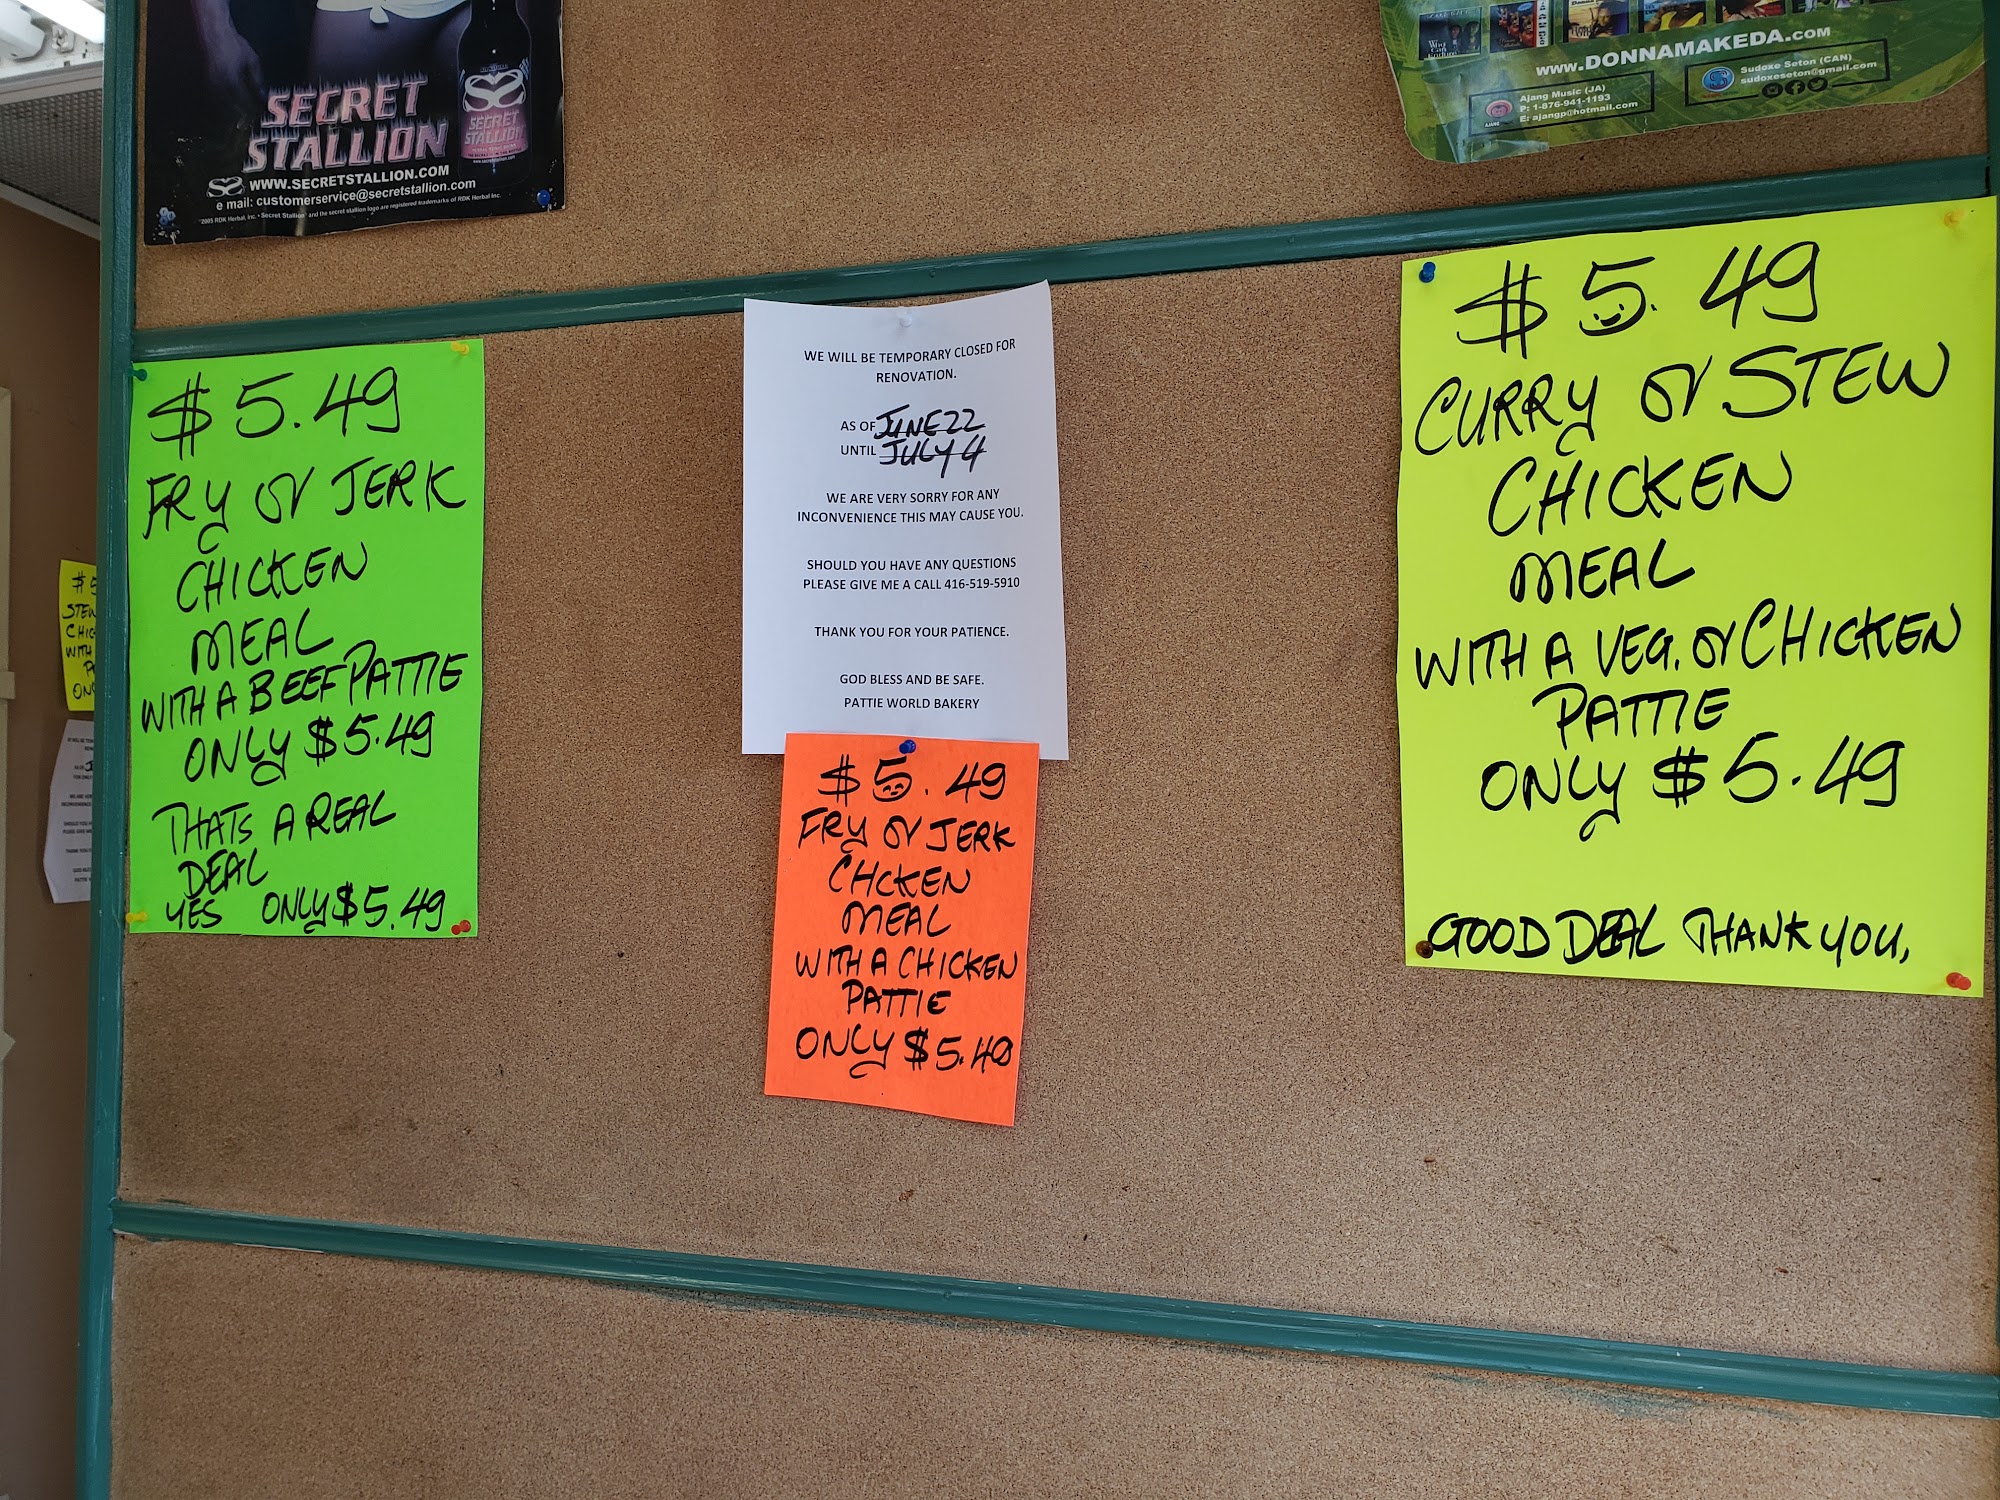 SECRET
STALLION
WWW.SECRETSTALLION.COM
e mail: customerservice@secretstallion.com
SECRET
STALLION
WWW.DONNAMAKEDA.COM
Ajang Music (JA)
P: 1-876-941-1193
E: ajangp@hotmail.com
Sudoxe Seton (CAN)
sudoxeseton@gmail.com
$5.49
FRY or JERK
CHICKEN
MEAL
WITH A BEEF PATTIE
ONLY $5.49
THATS A REAL
DEAL
YES ONLY $5.49
WE WILL BE TEMPORARY CLOSED FOR
RENOVATION.
AS OF JUNE 22
UNTIL JULY 4
WE ARE VERY SORRY FOR ANY
INCONVENIENCE THIS MAY CAUSE YOU.
SHOULD YOU HAVE ANY QUESTIONS
PLEASE GIVE ME A CALL 416-519-5910
THANK YOU FOR YOUR PATIENCE.
GOD BLESS AND BE SAFE.
PATTIE WORLD BAKERY
$5.49
FRY or JERK
CHCKEN
MEAL
WITH A CHICKEN
PATTIE
ONLY $5.49
$5.49
CURRY or STEW
CHICKEN
MEAL
WITH A VEG. or CHICKEN
PATTIE
ONLY $5.49
GOOD DEAL THANK YOU,
$5
STEW
WITH